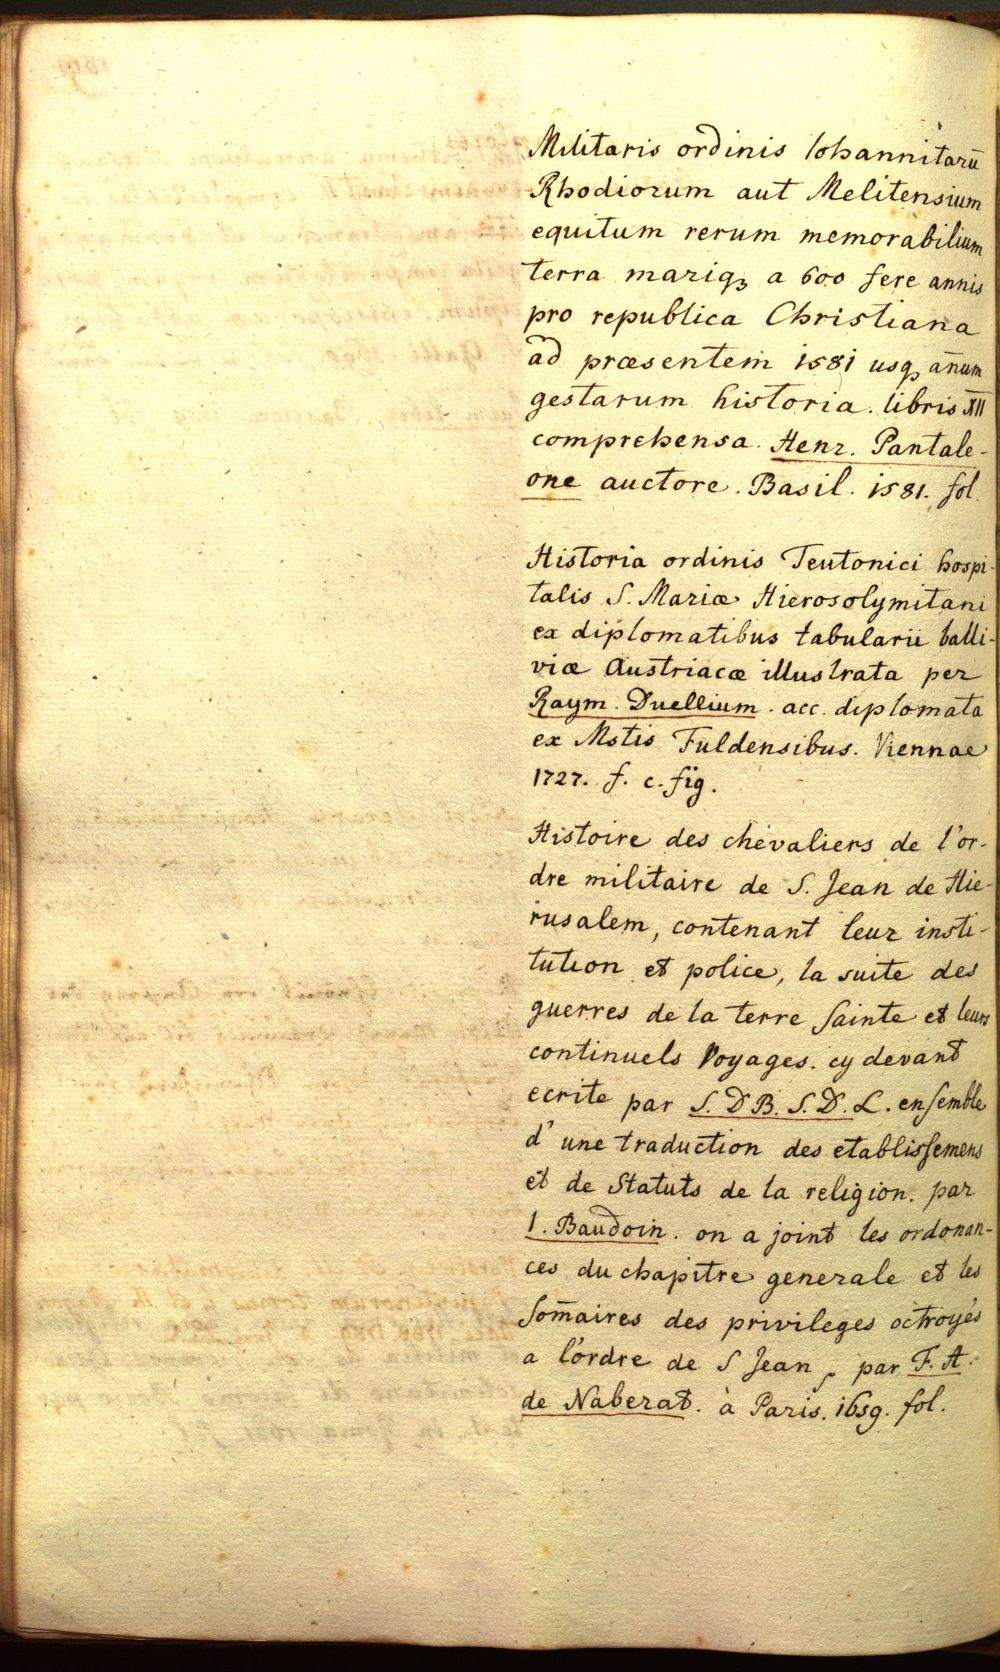 Militaris ordinis Iohannitarū
Rhodiorum aut Melitensium
equitum rerum memorabilium
terra mariqꝫ a 600 fere annis
pro republica Christiana
ad præsentem 1581 usqꝫ an̄um
gestarum historia. libris XII
comprehensa. Henr. Pantale-
one auctore. Basil. 1581. fol.
Historia ordinis Teutonici hospi-
talis S. Mariæ Hierosolymitani
ex diplomatibus tabularii balli-
viæ Austriacæ illustrata per
Raym. Duellium. acc. diplomata
ex Mstis Fuldensibus. Viennae
1727. f. c. fig.
Histoire des chevaliers de l'or-
dre militaire de S. Jean de Hie-
rusalem, contenant leur insti-
tution et police, la suite des
guerres de la terre Sainte et leurs
continuels Voyages. cy devant
ecrite par S. D B. S. D. L. ensemble
d'une traduction des etablissemens
et de Statuts de la religion. par
I. Baudoin. on a joint les ordonan-
ces du chapitre generale et les
som̄aires des privileges octroyés
a l'ordre de S Jean, par F. A.
de Naberat. à Paris. 1659. fol.